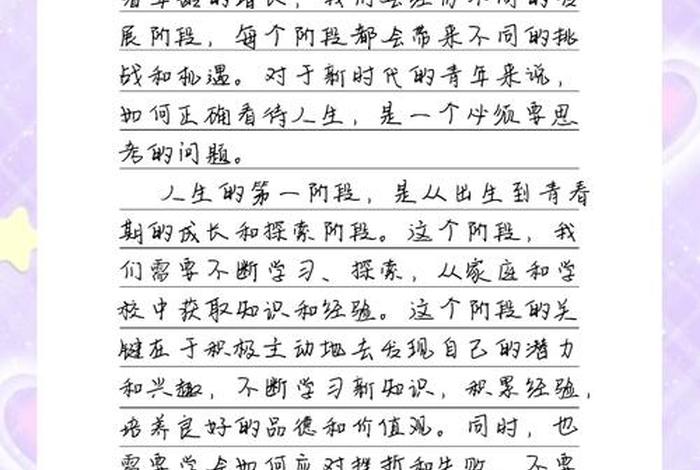 着年龄的增长，我们会经历不同的发
展阶段，每个阶段都会带来不同的挑
战和机遇。对于新时代的青年来说，
如何正确看待人生，是一个必须要思
考的问题。
人生的第一阶段，是从出生到青春
期的成长和探索阶段。这个阶段，我
们需要不断学习、探索，从家庭和学
校中获取知识和经验。这个阶段的关
键在于积极主动地去发现自己的潜力
和兴趣，不断学习新知识，积累经验，
培养良好的品德和价值观。同时，也
需要学会如何应对挫折和失败，不要